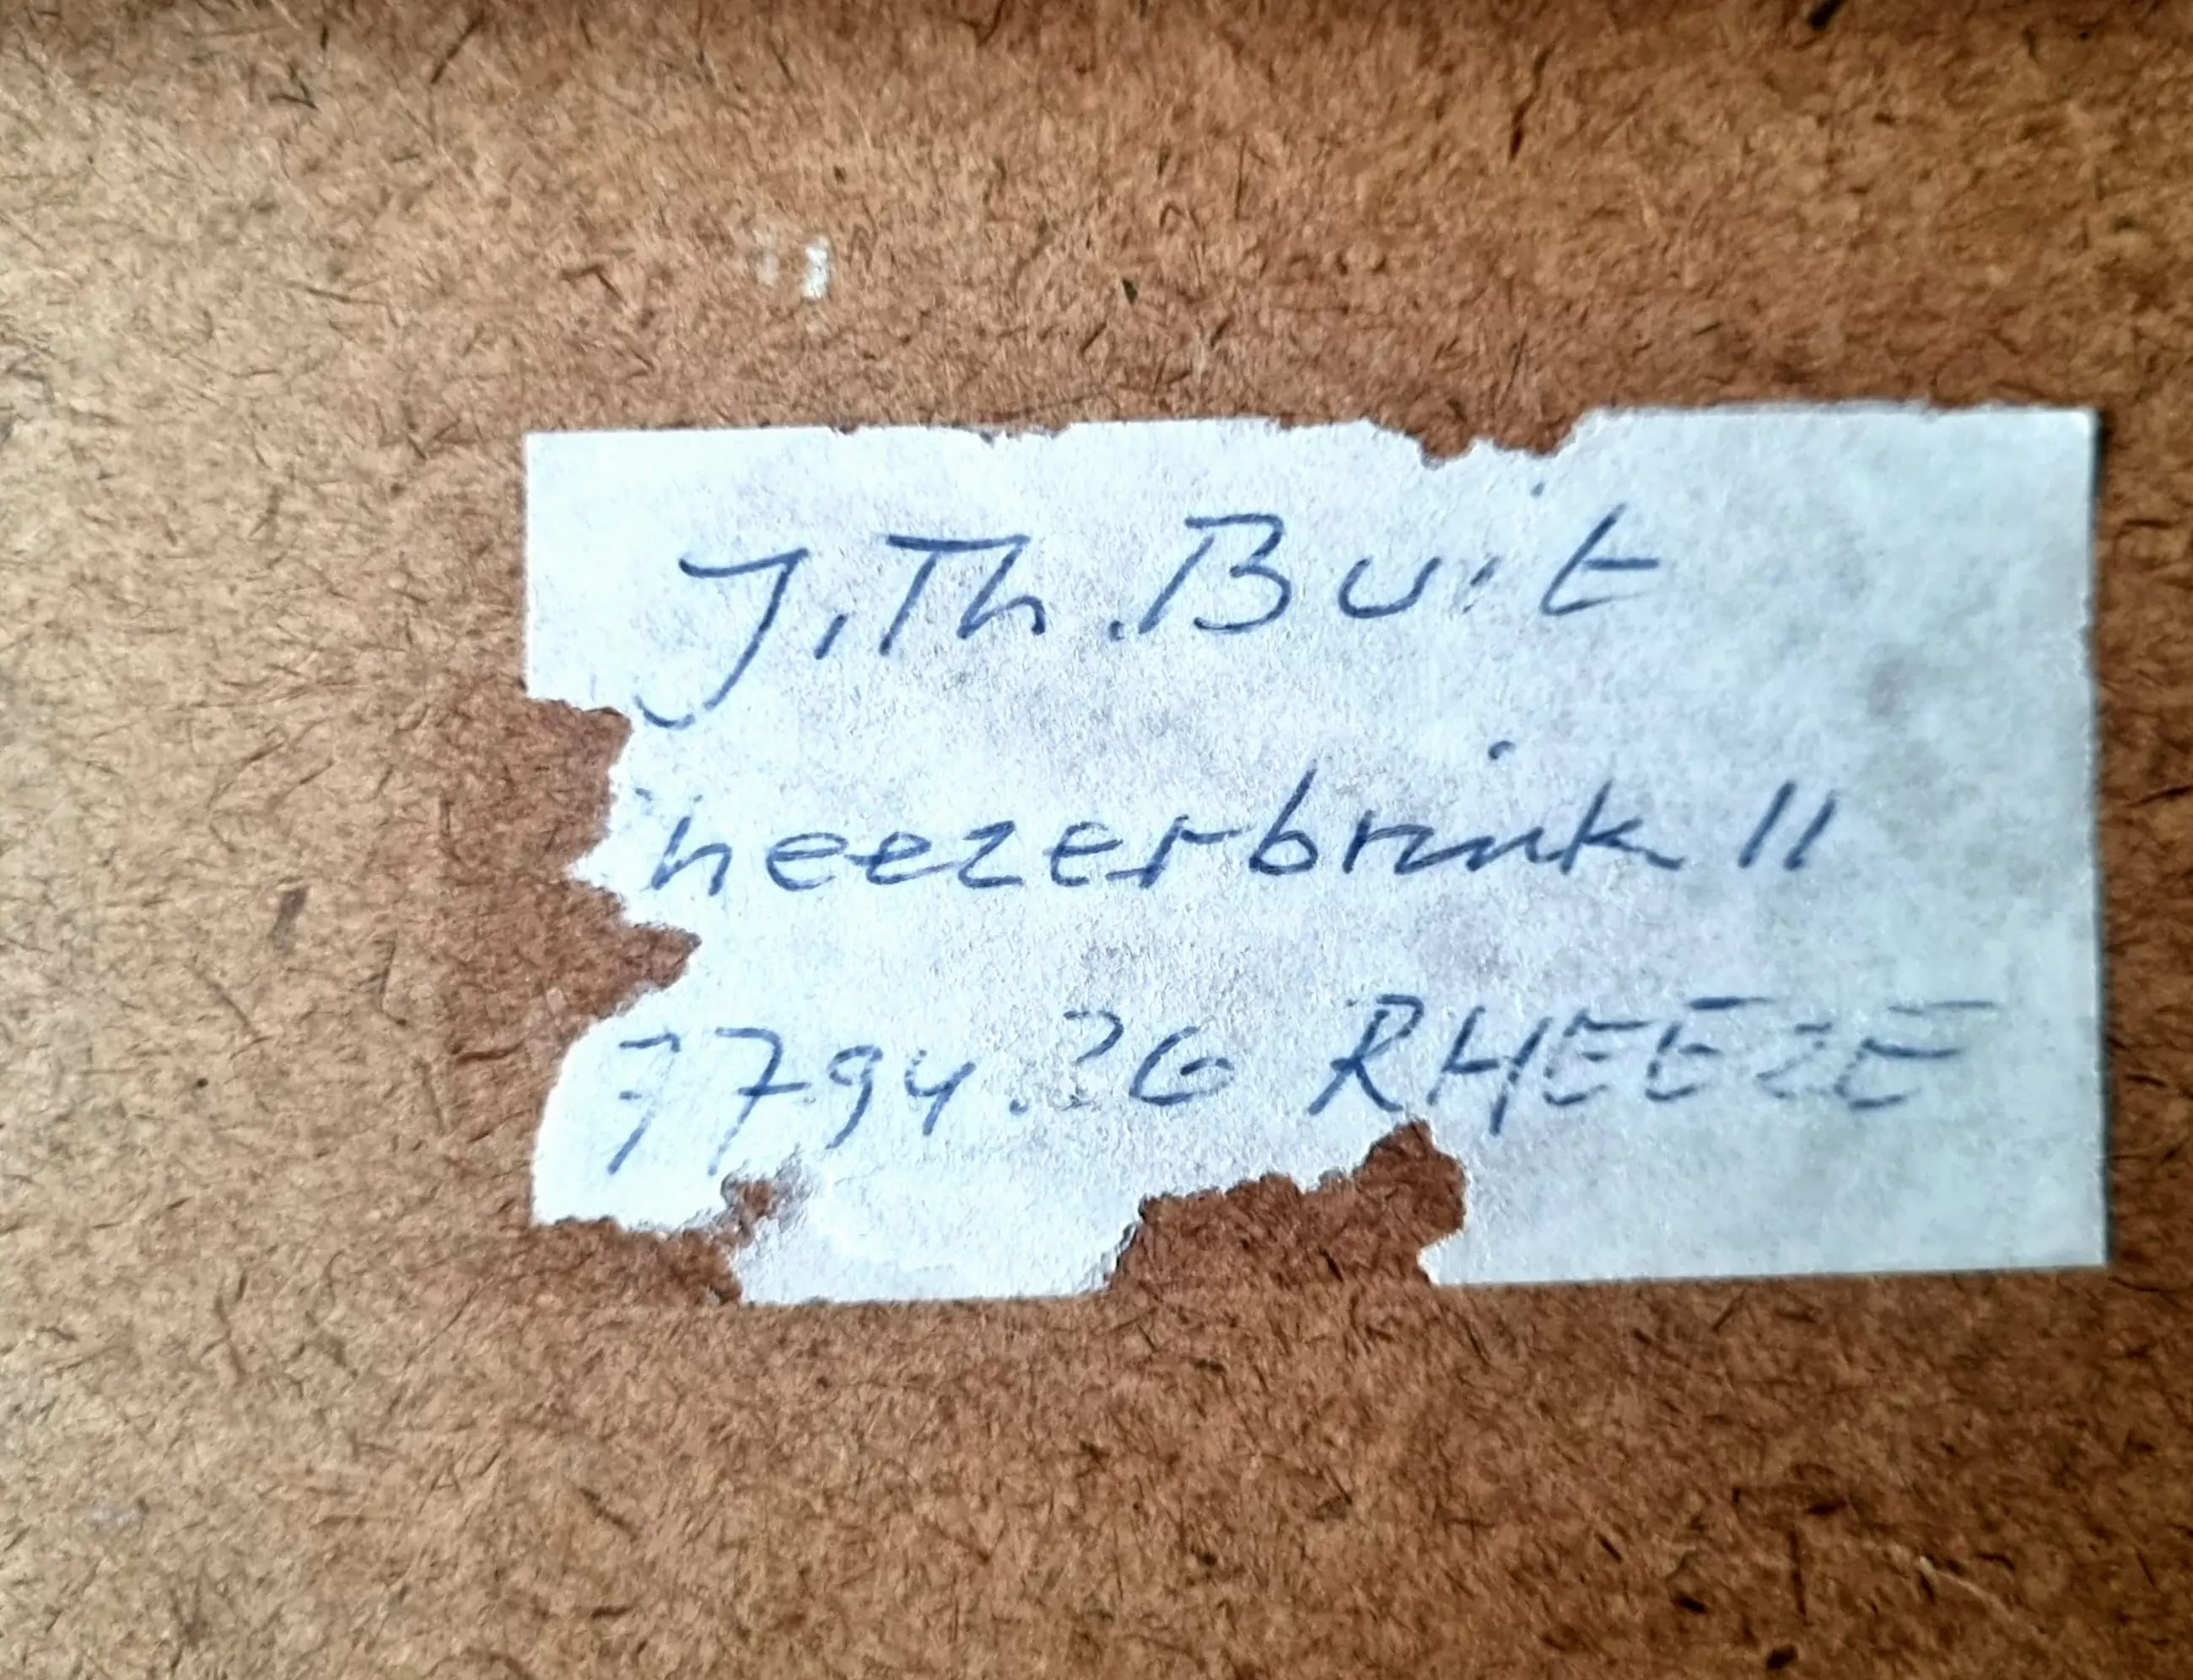 J.Th. Buit
heezerbrink 11
7794. RHEEZE